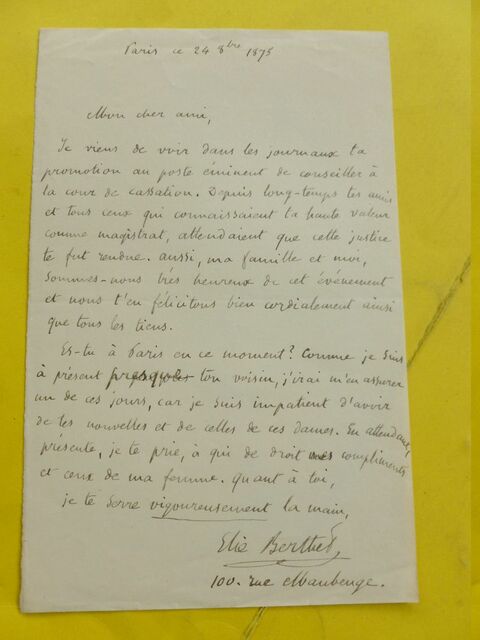 Paris ce 24 8bre 1875
Mon cher ami,
Je viens de voir dans les journaux ta
promotion au poste éminent de conseiller à
la cour de cassation. Depuis long-temps tes amis
et tous ceux qui connaissaient ta haute valeur
comme magistrat, attendaient que cette justice
te fut rendue. aussi, ma famille et moi,
sommes-nous très heureux de cet événement
et nous t'en félicitons bien cordialement ainsi
que tous les tiens.
Es-tu à Paris en ce moment? Comme je suis
à présent presque ton voisin, j'irai m'en assurer
un de ces jours, car je suis impatient d'avoir
de tes nouvelles et de celles de ces dames. En attendant,
présente, je te prie, à qui de droit mes compliments
et ceux de ma femme. quant à toi,
je te serre vigoureusement la main,
Elie Berthet,
100. rue Maubeuge.